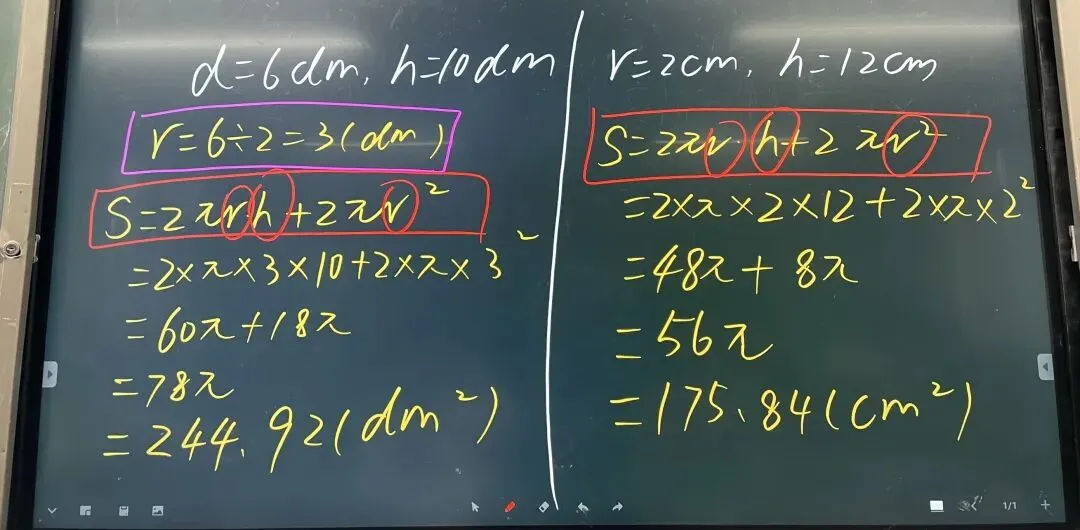 d=6dm, h=10dm
r=6÷2=3(dm)
S=2πrh+2πr²
=2×π×3×10+2×π×3²
=60π+18π
=78π
=244.92(dm²)
r=2cm, h=12cm
S=2πr·h+2πr²
=2×π×2×12+2×π×2²
=48π+8π
=56π
=175.84(cm²)
1/1